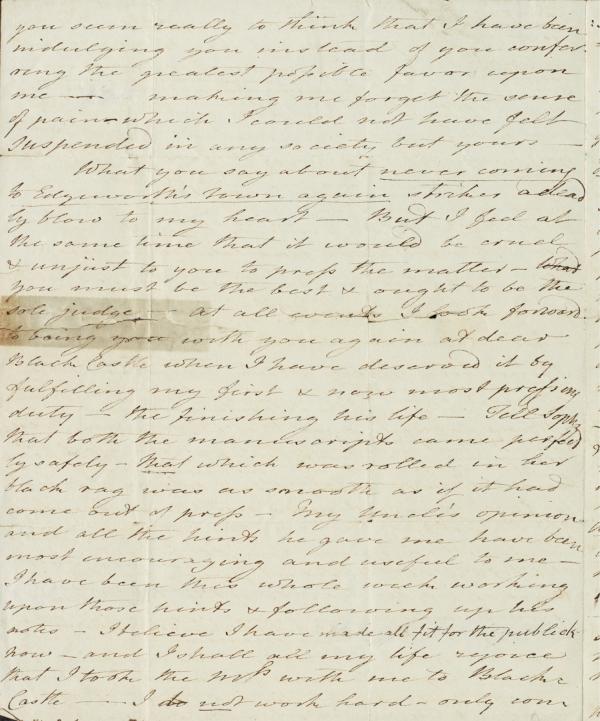 you seem really to think that I have been
indulging you instead of you confer-
ring the greatest possible favor upon
me — making me forget the sense
of pain which I could not have felt
suspended in any society but yours —
What you say about never coming
to Edgeworth's town again strikes a dead
ly blow to my heart — But I feel at
the same time that it would be cruel
& unjust to you to press the matter —
you must be the best & ought to be the
sole judge — at all events I look forward
to being you with you again at dear
Black Castle when I have deserved it by
fulfilling my first & now most pressing
duty — the finishing his life — Tell Sophy
that both the manuscripts came perfect
ly safely — that which was rolled in her
black rag was as smooth as if it had
come out of press — My Uncle's opinion
and all the hints he gave me have been
most encouraging and useful to me —
I have been this whole week working
upon those hints & following up his
notes — I believe I have made all fit for the publick
now — and I shall all my life rejoice
that I took the MS with me to Black
Castle — I do not work hard — only com